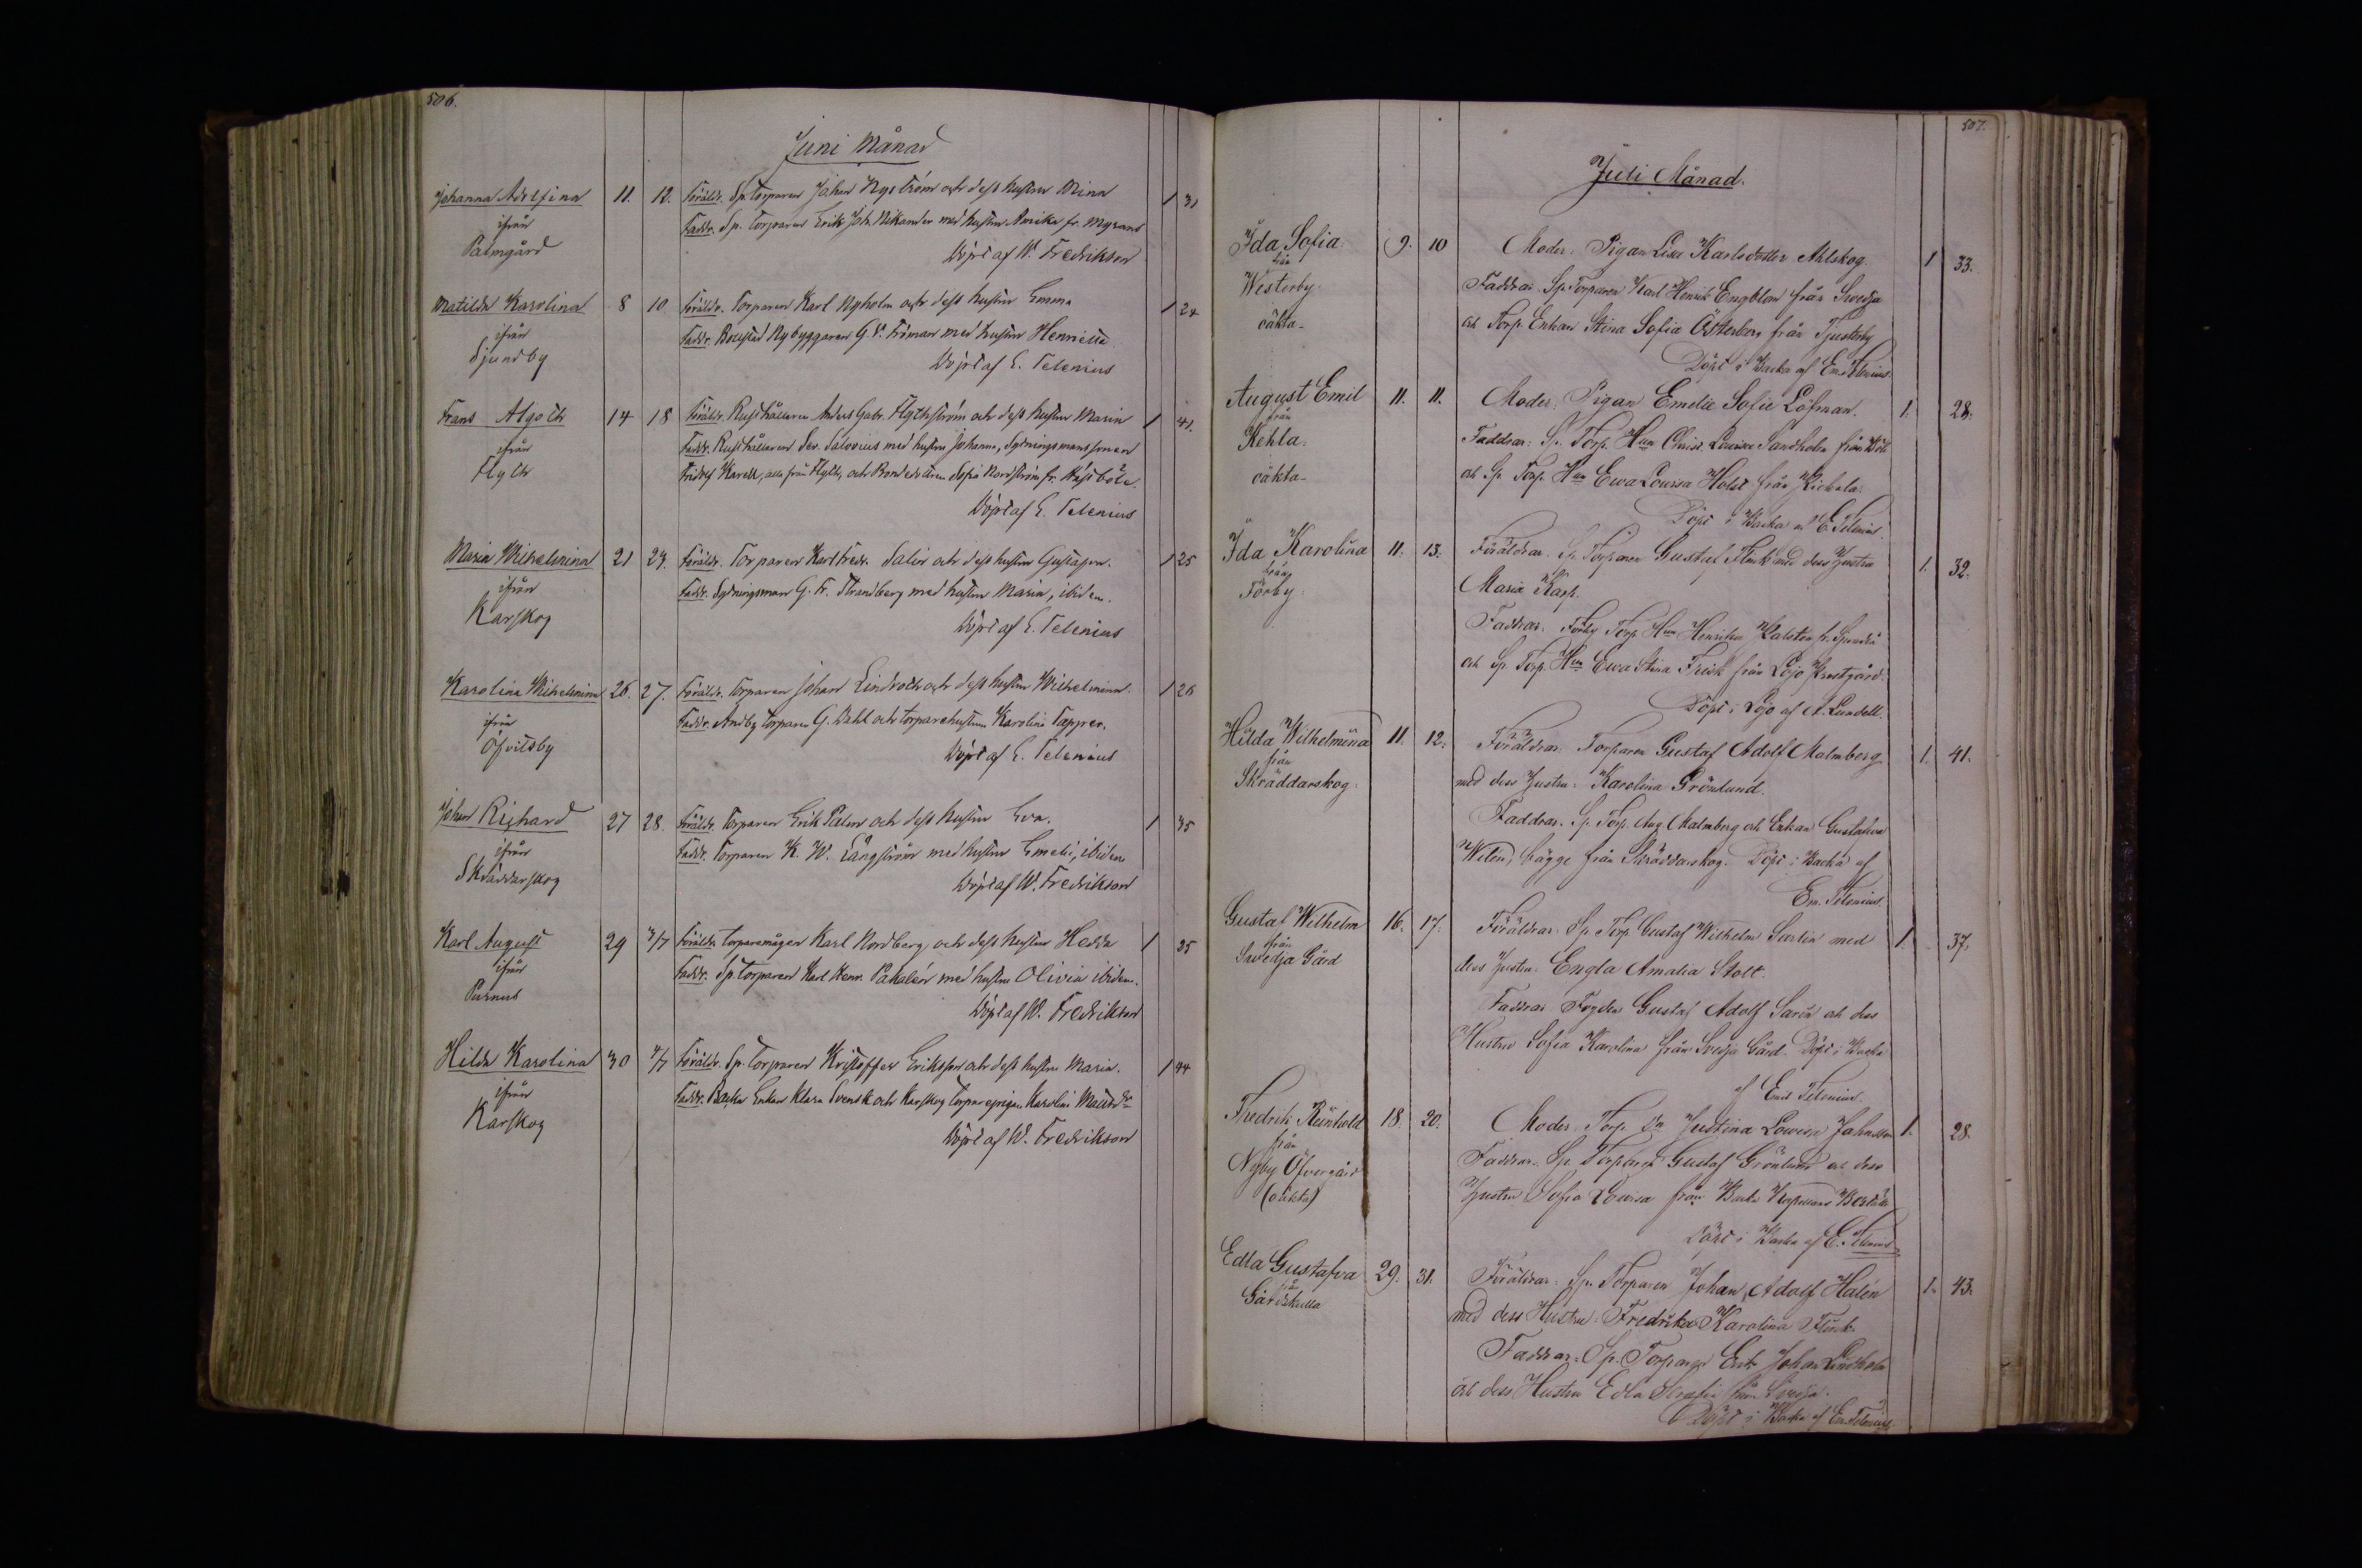 506.
Juni Månad
Johanna Adolfina 11. 12. Föräldr. Sp. Torparen Johan Nyström och dess hustru Mina 1 31
ifrån Faddr. Sp. Torparen Erik Joh. Nikander med hustru Amika fr. Myrans
Palmgård Döpt af W. Fredrikson
Matilda Karolina 8 10 Föräldr. Torparen Karl Nyholm och dess hustru Emma 1 24
ifrån Faddr. Nybyggaren G. V. Friman med hustru Henriette
Sjundby Döpt af E. Telenius
Frans Algoth 14 18 Föräldr. Rusthållaren Anders Gabr. Flythström och dess hustru Maria 1 41.
ifrån Faddr. Rusthållaren Ser. Salovius med hustru Johanna, Sytningsmanssonen
Flyth Fridolf Karell, alla från Flyth, och Bondedottren Sofia Nordström fr. Näsböle.
Döpt af E. Telenius
Maria Wilhelmina 21 24. Föräldr. Torparen Karl Fredr. Salin och dess hustru Gustafva. 1 25
ifrån Faddr. Sytningsman G. Fr. Strandberg med hustru Maria, ibidem.
Karskog Döpt af E. Telenius
Karolina Wilhelmina 26. 27. Föräldr. Torparen Johan Lindroth och dess hustru Wilhelmina. 1 26
ifrån Faddr. Andby Torparen G. Dahl och torparehustrun Karolina Tapper.
Öfvitsby Döpt af E. Telenius
Johan Richard 27 28. Föräldr. Torparen Erik Palm och dess hustru Eva. 1 35
ifrån Faddr. Torparen K. W. Långström med hustru Emelie, ibidem
Skräddarskog Döpt af W. Fredrikson
Karl August 29 3/7 Föräldr. Torparemågen Karl Nordberg och dess hustru Hedda 1 25
ifrån Faddr. Sp. Torparen Karl Henr. Pakalén med hustru Olivia ibidem.
Purnus Döpt af W. Fredrikson
Hilda Karolina 30 4/7 Föräldr. Sp. Torparen Kristoffer Eriksson och dess hustru Maria. 1 44
ifrån Faddr. Backa Enkan Klara Svensk och Karskog Torparepigan Karolina
Karskog Döpt af W. Fredrikson
507.
Juli Månad.
Ida Sofia. 9. 10 Moder. Pigan Lisa Karlsdotter Ahlskog. 1 33.
från Faddrar. Sp. Torparen Karl Henrik Engblom från Svedja
Westerby och Torp. Enkan Stina Sofia Österberg från Tjusterby
oäkta. Döpt i Backa af Em. Telenius.
August Emil 11. 11. Moder. Pigan Emelie Sofie Löfman. 1. 28.
från Faddrar: Sp. Torp. Hun Christ. Lovisa Sandholm från
Kehla. och Sp. Torp. Hun Ewa Lovisa Holst från Kickala.
oäkta. Döpt i Backa af E. Telenius.
Ida Karolina 11. 13. Föräldrar. Sp. Torparen Gustaf Flink med dess Hustru 1. 32.
från Maria Karp.
Torby. Faddrar. Torby Torp. Hun Henrika
och Sp. Torp. Hun Ewa Stina Frisk från Lojo Prestgård.
Döpt i Lojo af A. Lundell.
Hilda Wilhelmina 11. 12. Föräldrar. Torparen Gustaf Adolf Malmberg 1. 41.
från med dess Hustru. Karolina Grönlund.
Skräddarskog. Faddrar. Sp. Torp. Aug. Malmberg och Enkan Gustafva
Welén, bägge från Skräddarskog. Döpt i Backa af
Em. Telenius.
Gustaf Wilhelm 16. 17. Föräldrar. Sp. Torp. Gustaf Wilhelm Sarlin med 1. 37.
från dess Hustru. Engla Amalia Stolt.
Svedja Gård Faddrar. Fogden Gustaf Adolf Sarin och dess
Hustru Sofia Karolina från Svedja Gård. Döpt i Backa
af Em. Telenius.
Fredrik Reinhold 18. 20. Moder. Torp. Dn Justina Lovisa Jahnsson 1. 28.
från Faddrar. Sp. Torparen Gustaf Grönlund och dess
Nyby Öfvergård Hustru Sofia Lovisa från Backa Kapellans Bostäle
(oäkta) Döpt i Backa af E. Telenius.
Edla Gustafva 29. 31. Föräldrar. Sp. Torparen Johan Adolf Halén 1. 43.
från med dess Hustru. Fredrika Karolina Flinck.
Gårdskulla Faddrar. Sp. Torparen Erik Johan Lindholm
och dess Hustru Edla Serafia från Svedja.
Döpt i Backa af Em. Telenius.